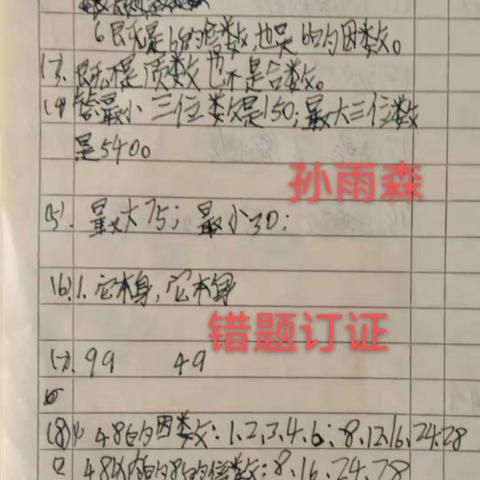 6既是6的倍数,也是6的因数。
(3).既不是质数也不是合数。
(4)答最小三位数是150;最大三位数
是540。
孙雨森
(5).最大75;最小30;
(6).1.它本身,它本身
错题订证
(7).99 49
(8) 48的因数:1、2、3、4、6;8、12、16、24、28
48以内的8的倍数:8、16、24、28